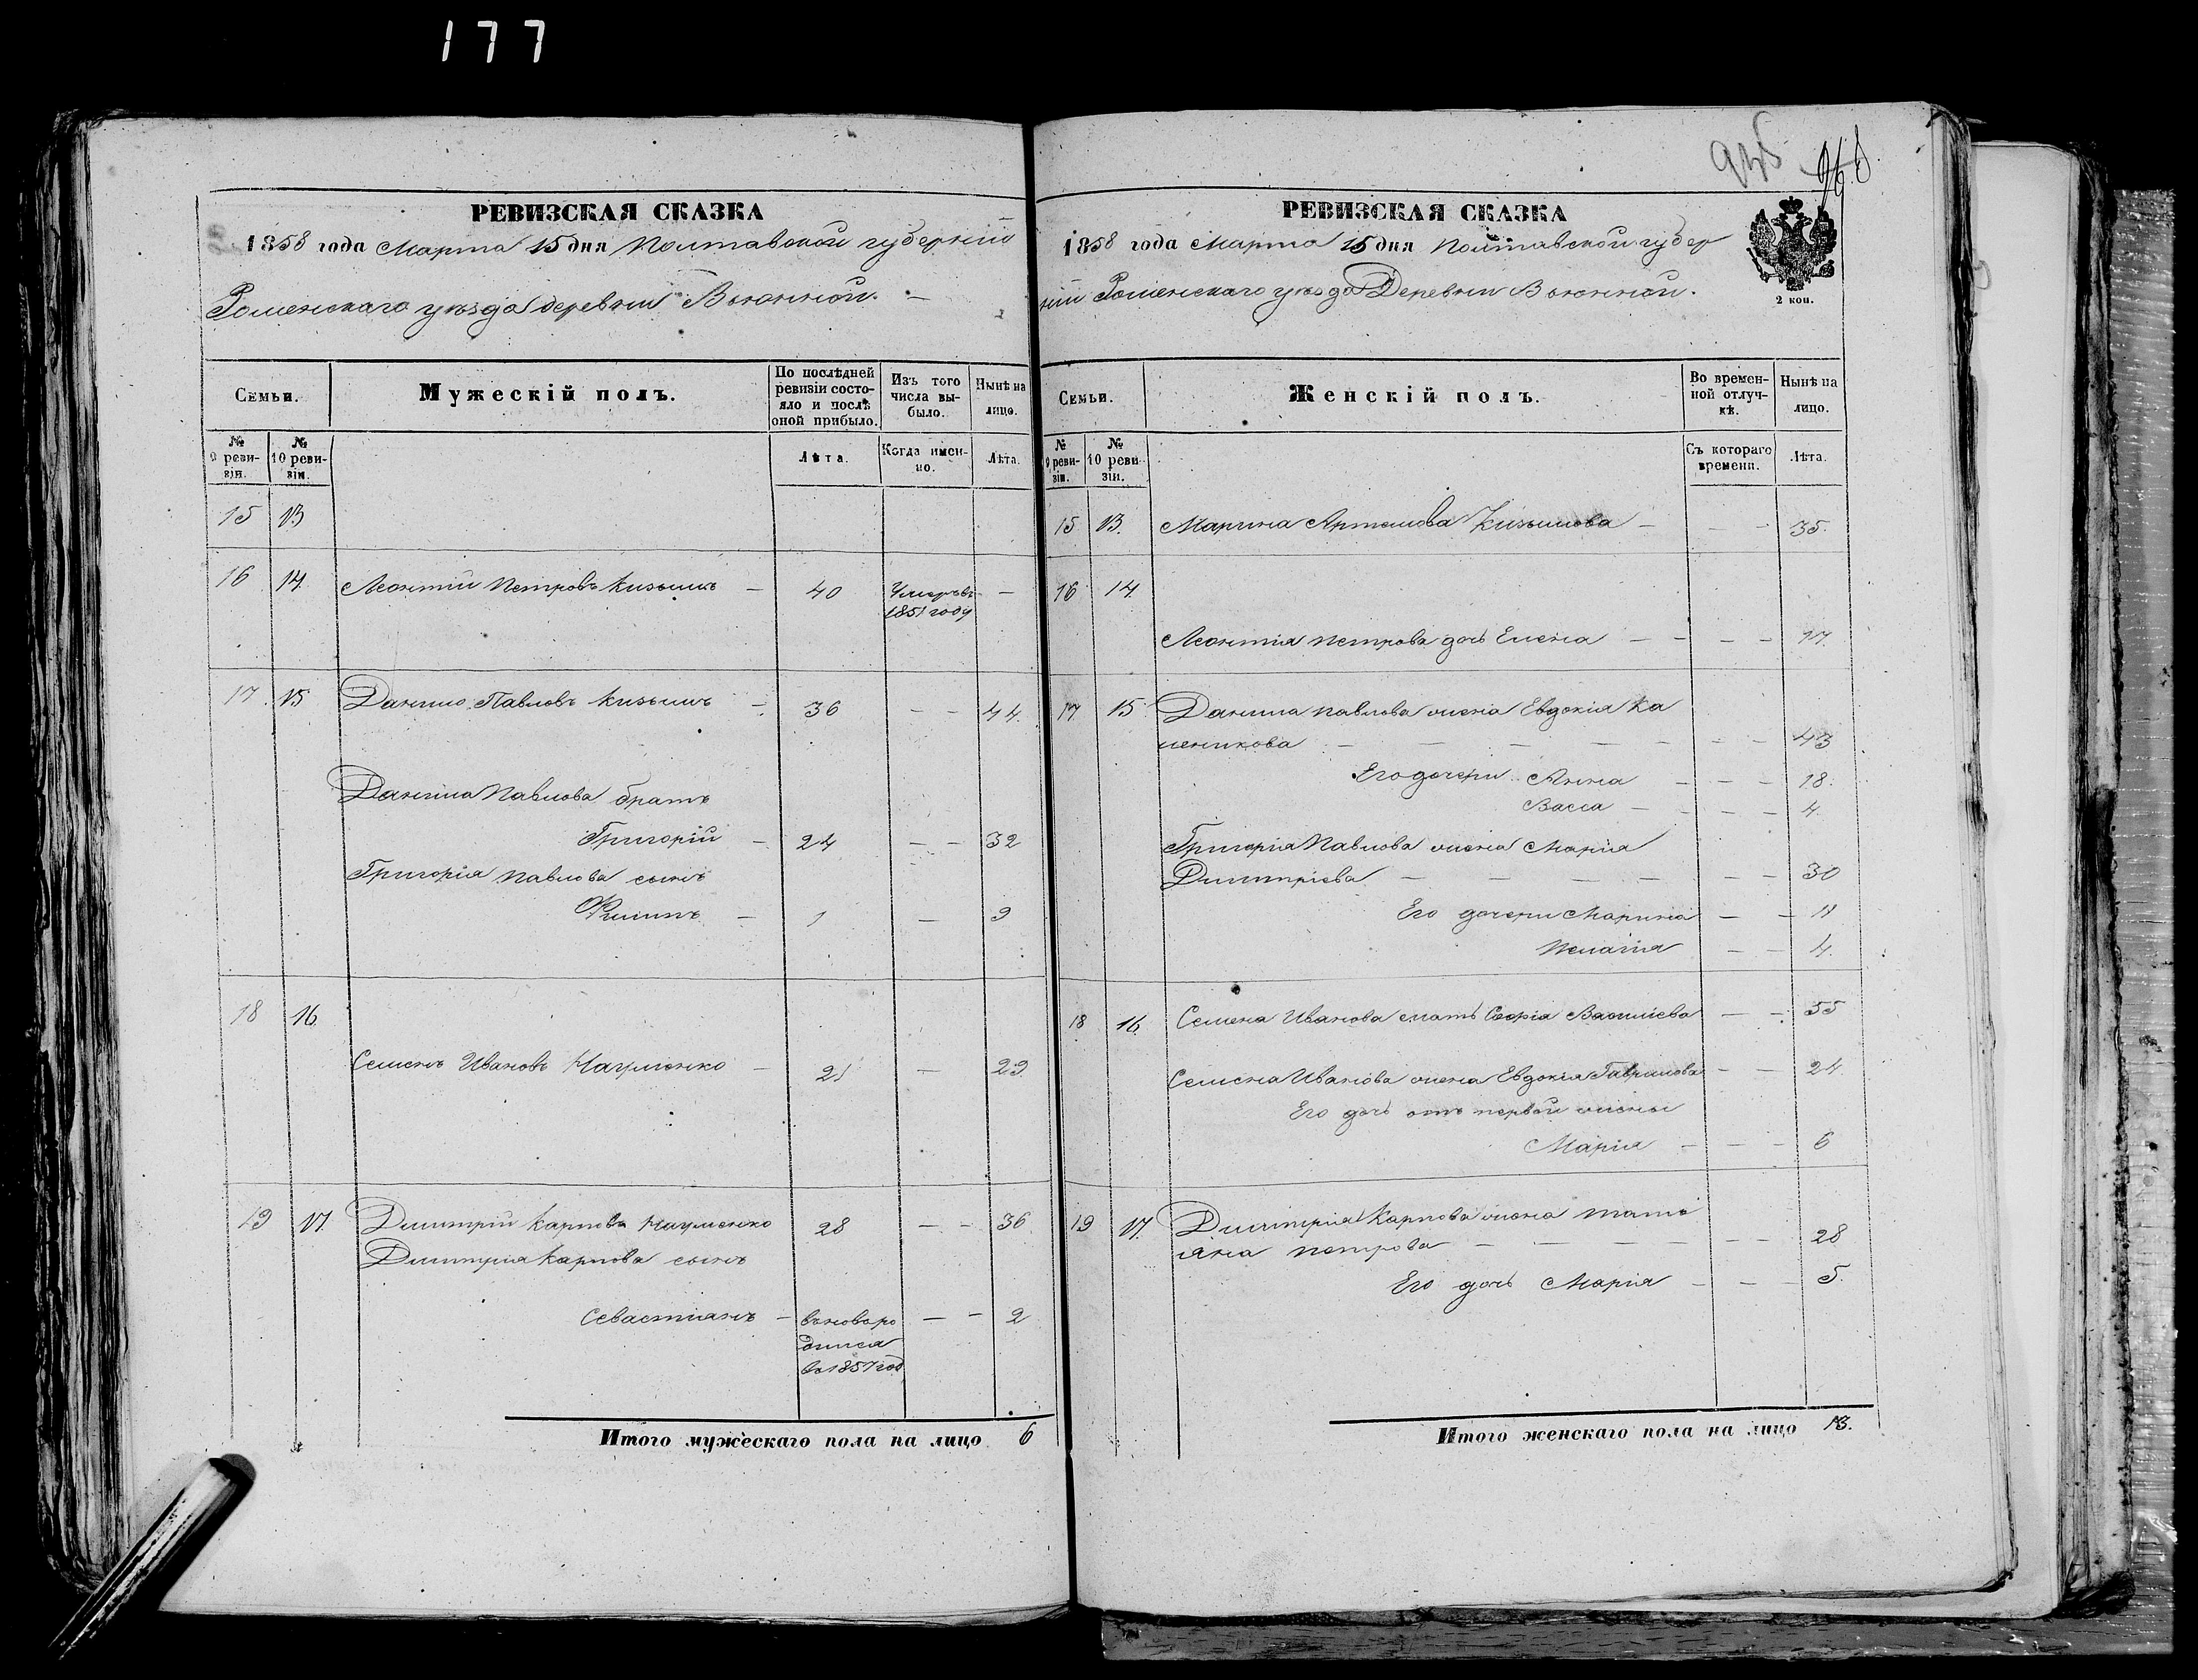 177
РЕВИЗСКАЯ СКАЗКА
1858 года Марта 15 дня Полтавской губерніи
Роменскаго уѣзда деревни Вьюнной.
Семьи.
Мужескій полъ.
По послѣдней ревизіи состояло и послѣ оной прибыло.
Изъ того числа выбыло.
Нынѣ на лицо.
№ 9 ревизіи.
№ 10 ревизіи.
Лѣта.
Когда именно.
Лѣта.
15 13
16 14 Леонтій Петровъ Кизымъ — 40 Умеръ въ —
1851 году
17 15 Данило Павловъ Кизымъ — 36 — — 44
Данила Павлова братъ
Григорій — 24 — — 32
Григорія Павлова сынъ
Филипъ — 1 — 9
18 16
Семенъ Ивановъ Науменко — 21 — 29
19 17 Димитрій Карповъ Науменко 28 — — 36
Димитрія Карпова сынъ
Севастіанъ — вновь ро — — 2
дился
въ 1857 год
Итого мужескаго пола на лицо 6
945 96
РЕВИЗСКАЯ СКАЗКА
1858 года Марта 15 дня Полтавской губер
ніи Роменскаго уѣзда Деревни Вьюнной.
2 коп.
Семьи.
Женскій полъ.
Во временной отлучкѣ.
Нынѣ на лицо.
№ 9 ревизіи.
№ 10 ревизіи.
Съ котораго времени.
Лѣта.
15 13. Марина Артемова Кизымова — — — 35.
16 14
Леонтія Петрова дочь Елена — — — — 17.
17 15 Данила Павлова жена Евдокія Ка
леникова — — — — — — — 43
Его дочери Анна — — — 18.
Васса — — — 4.
Григорія Павлова жена Марія
Димитріева — — — — — — 30
Его дочери Марина — — 11
Пелагія — — 4.
18 16. Семена Иванова мать Софія Василіева — — 55
Семена Иванова жена Евдокія Гаврилова — — 24
Его дочь отъ первой жены
Марія — — — 6
19 17. Димитрія Карпова жена Тать
яна Петрова — — — — — — 28
Его дочь Марія — — — 5.
Итого женскаго пола на лицо 13.